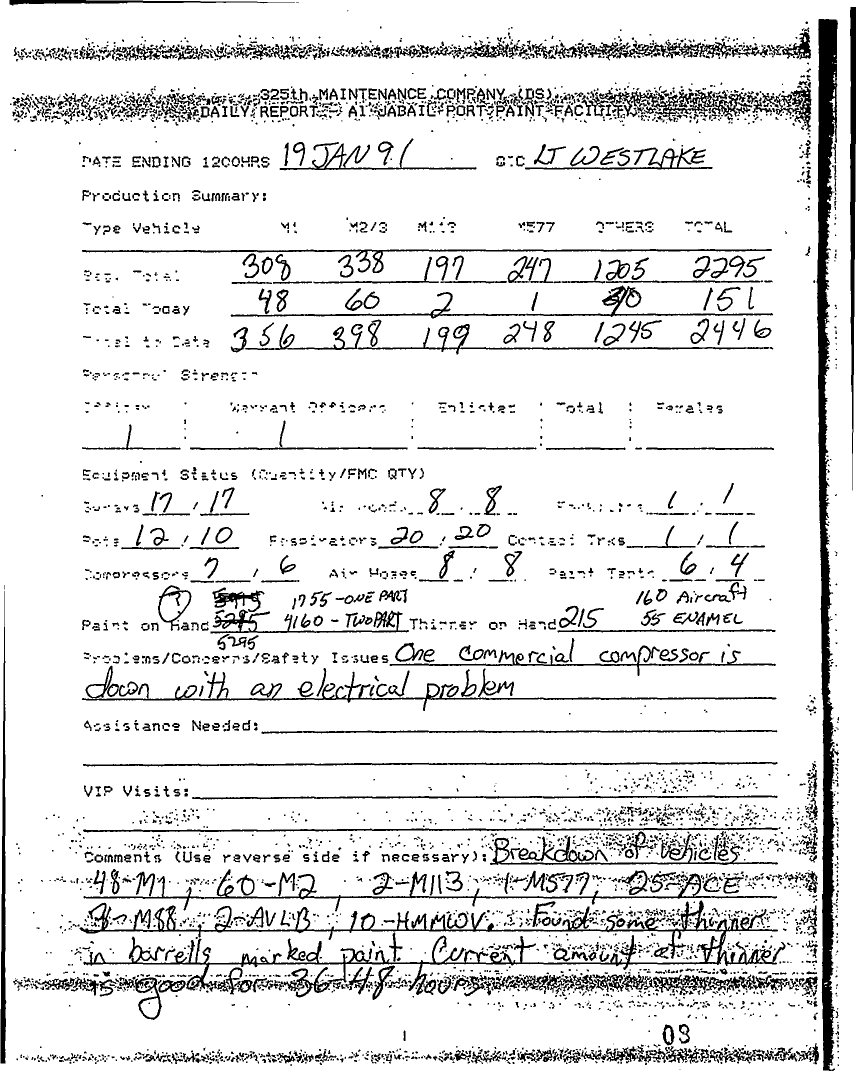 325th MAINTENANCE COMPANY (DS)
DAILY REPORT - Al JABAIL PORT PAINT FACILITY
DATE ENDING 1200HRS 19 JAN 91 OIC LT WESTLAKE
Production Summary:
Type Vehicle M1 M2/3 M113 M577 OTHERS TOTAL
Beg. Total 308 338 197 247 1205 2295
Total Today 48 60 2 1 151
Total to Date 356 398 199 248 1245 2446
Personnel Strength
Officer Warrant Officers Enlisted Total Females
1 1
Equipment Status (Quantity/FMC QTY)
17 / 17 Air 8 8 1 / 1
Pots 12 / 10 Respirators 20 / 20 Contact Trks 1 / 1
Compressors 7 / 6 Air Hoses 8 / 8 Paint Tents 6 / 4
1755 - ONE PART 160 Aircraft
Paint on Hand 4160 - TWO PART Thinner on Hand 215 55 ENAMEL
5295
Problems/Concerns/Safety Issues One commercial compressor is
down with an electrical problem
Assistance Needed:
VIP Visits:
Comments (Use reverse side if necessary): Breakdown of vehicles
48-M1, 60-M2, 2-M113, 1-M577, 25-ACE
M88, 2-AVLB, 10-HMMWV. Found some thinner
in barrells marked paint. Current amount of thinner
is good for 36-48 hours.
1
03